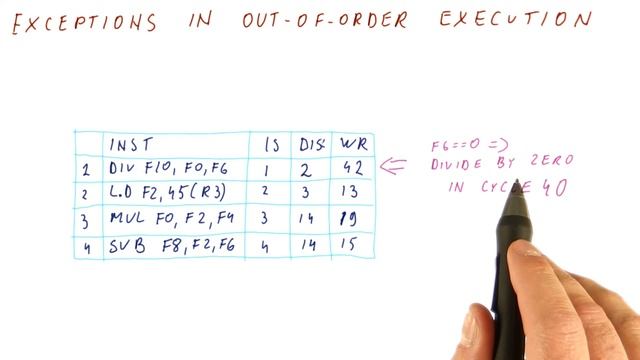 EXCEPTIONS IN OUT-OF-ORDER EXECUTION
INST IS DIS WR
1 DIV F10, F0, F6 1 2 42
2 L.D F2, 45(R3) 2 3 13
3 MUL F0, F2, F4 3 14 19
4 SUB F8, F2, F6 4 14 15
F6==0 =>
DIVIDE BY ZERO
IN CYCLE 40